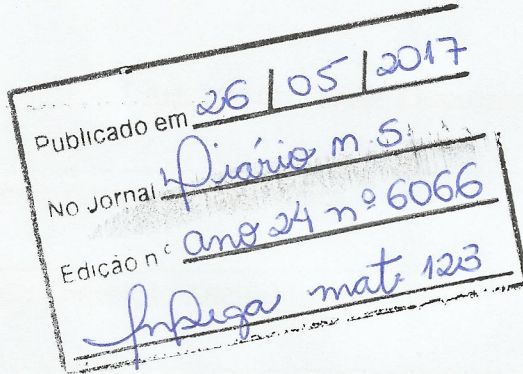 Publicado em 26 | 05 | 2017
No Jornal Diário m. S.
Edição nº ano 24 nº 6066
mat. 123